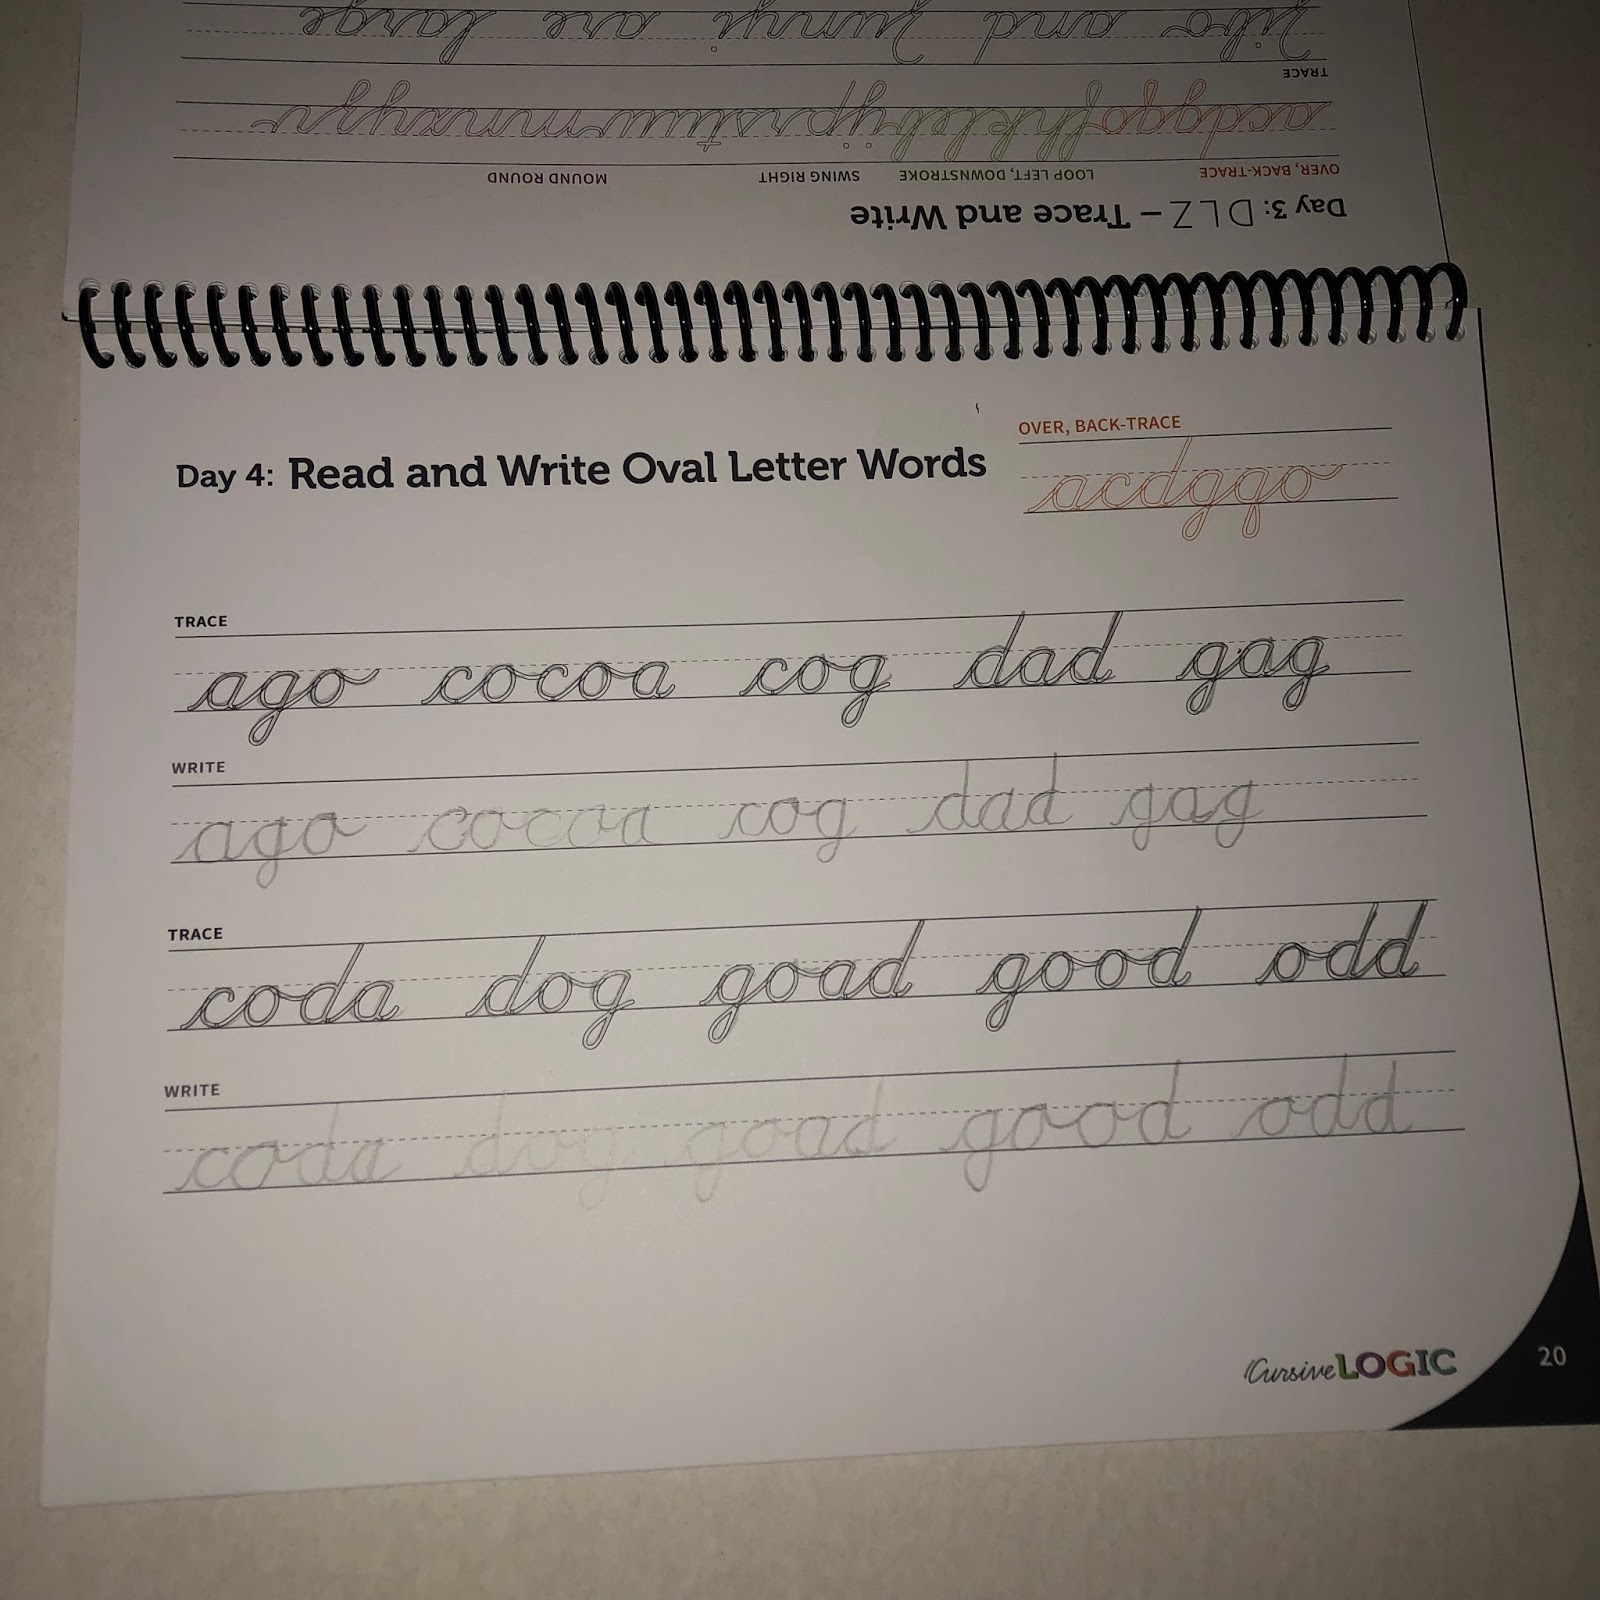 Jibo and Junyi are large
TRACE
acdgqofhklebijyprstuwmnvxyzv
OVER, BACK-TRACE LOOP LEFT, DOWNSTROKE SWING RIGHT MOUND ROUND
Day 3: D L Z – Trace and Write
OVER, BACK-TRACE
Day 4: Read and Write Oval Letter Words
acdgqo
TRACE
ago cocoa cog dad gag
WRITE
ago cocoa cog dad gag
TRACE
coda dog goad good odd
WRITE
coda dog goad good odd
CursiveLOGIC
20